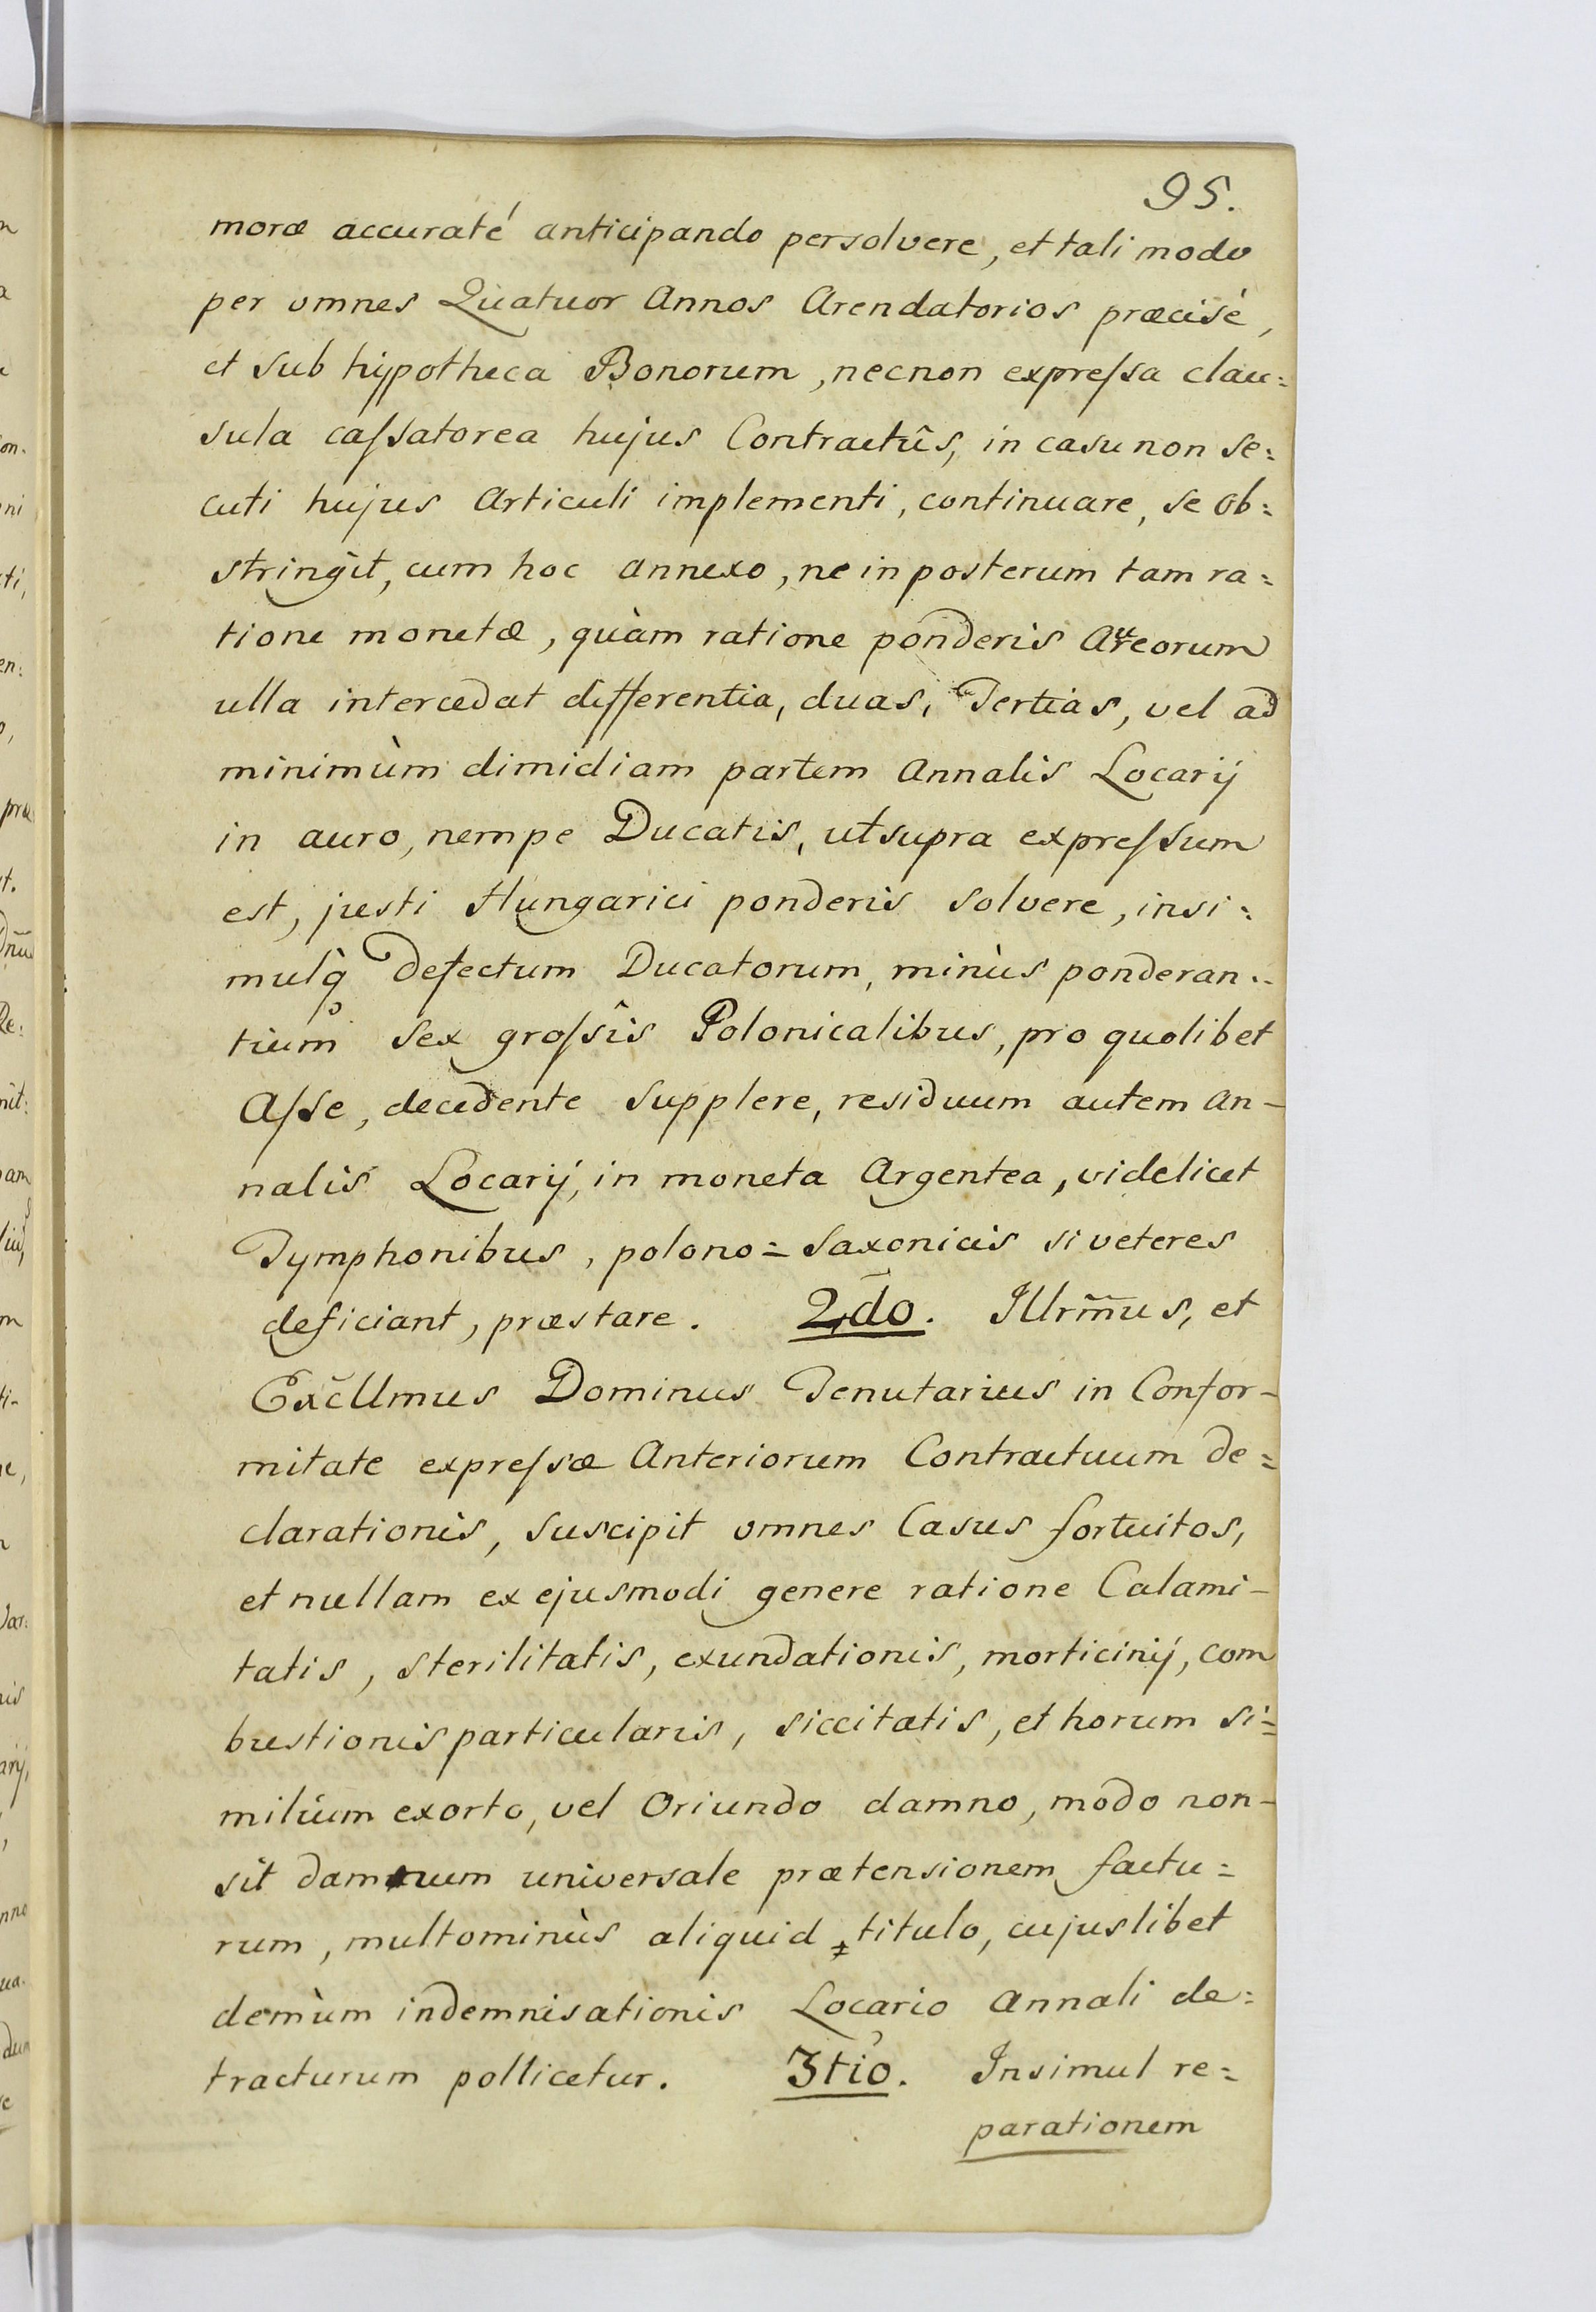 95.
moræ accuraté anticipando persolvere, et tali modo
per omnes Quatuor Annos Arendatorios præcisè,
et sub hÿpotheca Bonorum, necnon expreſsa clau=
sula caſsatorea hujus Contractûs, in casu non se=
cuti hujus Articuli implementi, continuare, se ob=
stringit, cum hoc annexo, ne in posterum tam ra=
tione monetæ, quàm ratione ponderis Aureorum
ulla intercedat differentia, duas, Tertias, vel ad
minimùm dimidiam partem Annalis Locarij
in auro, nempe Ducatis, utsupra expreſsum
est, justi Hungarici ponderis solvere, insi=
mulq̀ defectum Ducatorum, minùs ponderan=
tium sex groſsîs Polonicalibus, pro quolibet
Aſse, decedente supplere, residuum autem An-
nalis Locarij, in moneta Argentea, videlicet
Tymphonibus, polono=saxonicis si veteres
deficiant, præstare. 2do. Illrm̃us, et
Exc̃llmus Dominus Tenutarius in Confor-
mitate expreſsæ Anteriorum Contractuum de=
clarationis, suscipit omnes Casus fortuitos,
et nullam ex ejusmodi genere ratione Calami-
tatis, sterilitatis, exundationis, morticinij, com
bustionis particularis, siccitatis, et horum si=
milium exorto, vel Oriundo damno, modo non-
sit damnum universale prætensionem factu=
rum, multominùs aliquid titulo, cujuslibet
demùm indemnisationis Locario Annali de=
tracturum pollicetur. 3tio. Insimul re=
parationem